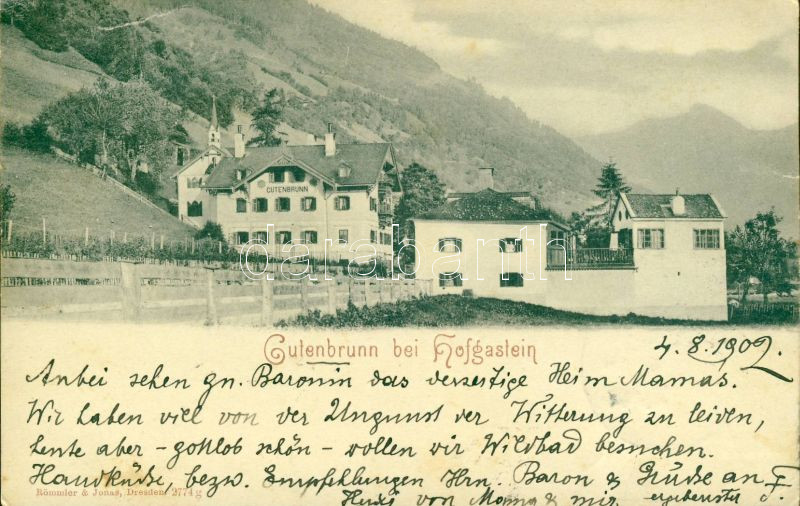 GUTENBRUNN
darabanth
Gutenbrunn bei Hofgastein
4.8.1902.
Anbei sehen gn. Baronin das derzeitige Heim Mamas.
Wir haben viel von der Ungunst der Witterung zu leiden,
heute aber - gottlob schön - wollen wir Wildbad besuchen.
Handküße, bezw. Empfehlungen Hrn. Baron & Grüße an F
von Mama & mir ergebenster J.
Römmler & Jonas, Dresden. 2774g